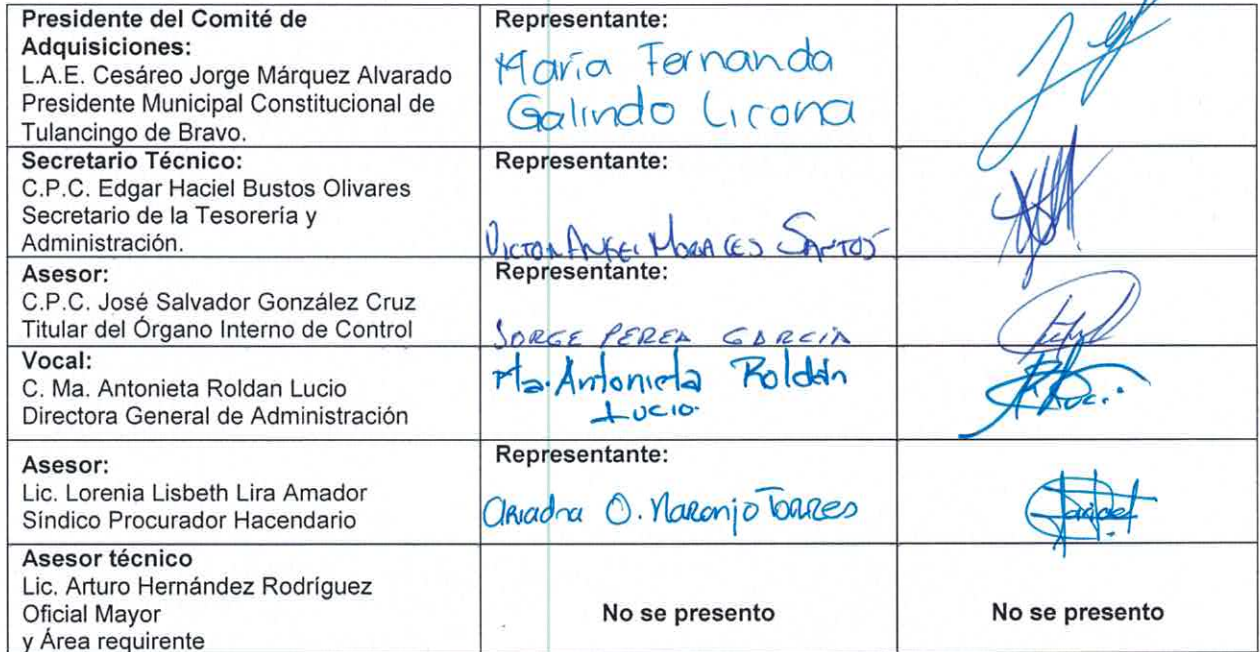 Presidente del Comité de
Adquisiciones:
L.A.E. Cesáreo Jorge Márquez Alvarado
Presidente Municipal Constitucional de
Tulancingo de Bravo.
Representante:
María Fernanda
Galindo Licona
Secretario Técnico:
C.P.C. Edgar Haciel Bustos Olivares
Secretario de la Tesorería y
Administración.
Representante:
Victor Angel Morales Santos
Asesor:
C.P.C. José Salvador González Cruz
Titular del Órgano Interno de Control
Representante:
JORGE PEREA GARCÍA
Vocal:
C. Ma. Antonieta Roldan Lucio
Directora General de Administración
Ma. Antonieta Roldán
Lucio.
Asesor:
Lic. Lorenia Lisbeth Lira Amador
Síndico Procurador Hacendario
Representante:
Ariadna O. Naranjo Torres
Asesor técnico
Lic. Arturo Hernández Rodríguez
Oficial Mayor
y Área requirente
No se presento
No se presento